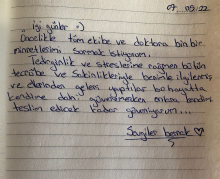 07.09.22
İyi günler :)
Öncelikle tüm ekibe ve doktora bin bir
minnetlerimi sunmak istiyorum.
Tedirginlik ve streslerime rağmen bütün
tecrübe ve sakinlikleriyle benimle ilgilenmiş
ve ellerinden geleni yaptılar bu hayatta
kendime dahi güvenmezken onlara kendimi
teslim edecek kadar güveniyorum...
Sevgiler